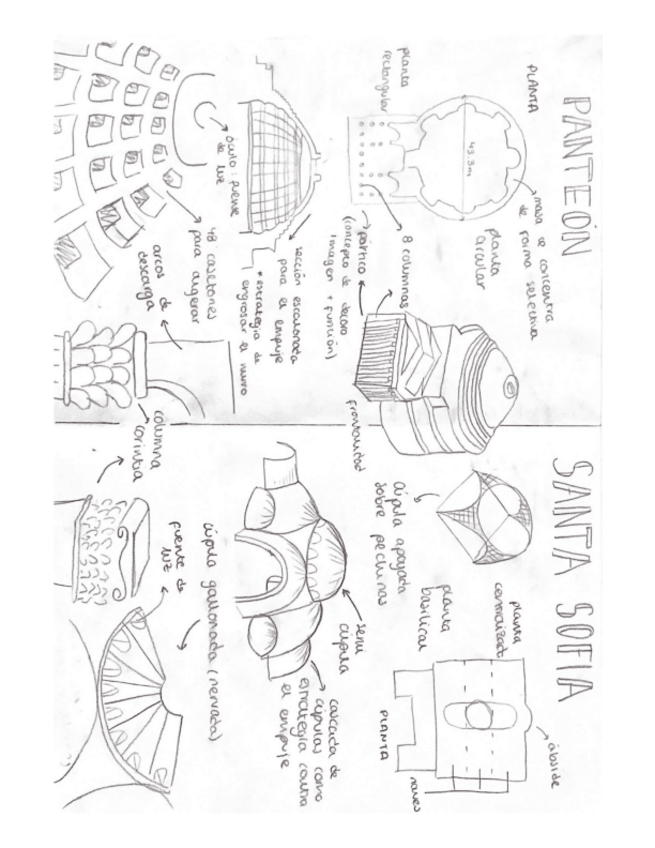 PANTEÓN
PLANTA
43.3m
masa se concentra
de forma selectiva
planta
circular
planta
rectangular
8 columnas
pórtico
(concepto de decoro
imagen + función)
frontalidad
óculo: fuente
de luz
sección escalonada
para el empuje
+ estrategia de
engrosar el muro
48 casetones
para aligerar
arcos de
descarga
columna
corintia
SANTA SOFIA
planta
centralizada
planta
basilical
ábside
PLANTA
naves
cúpula apoyada
sobre pechinas
semi
cúpula
cascada de
cúpulas como
estrategia contra
el empuje
cúpula gallonada (nervada)
fuente de
luz